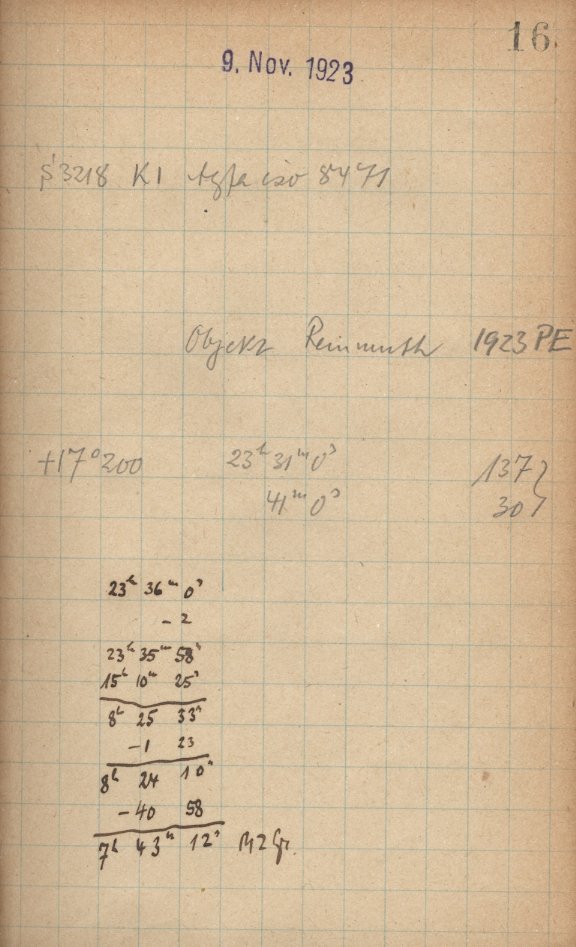 16
9. Nov. 1923
3218 K1 Agfa iso 8471
Objekt Reinmuth 1923 PE
+17°200 23ʰ 31ᵐ 0ˢ 137}
41ᵐ 0ˢ 30}
23ʰ 36ᵐ 0ˢ
- 2
23ʰ 35ᵐ 58ˢ
15ʰ 10ᵐ 25ˢ
8ʰ 25 33ˢ
-1 23
8ʰ 24 10ˢ
-40 58
7ʰ 43ᵐ 12ˢ